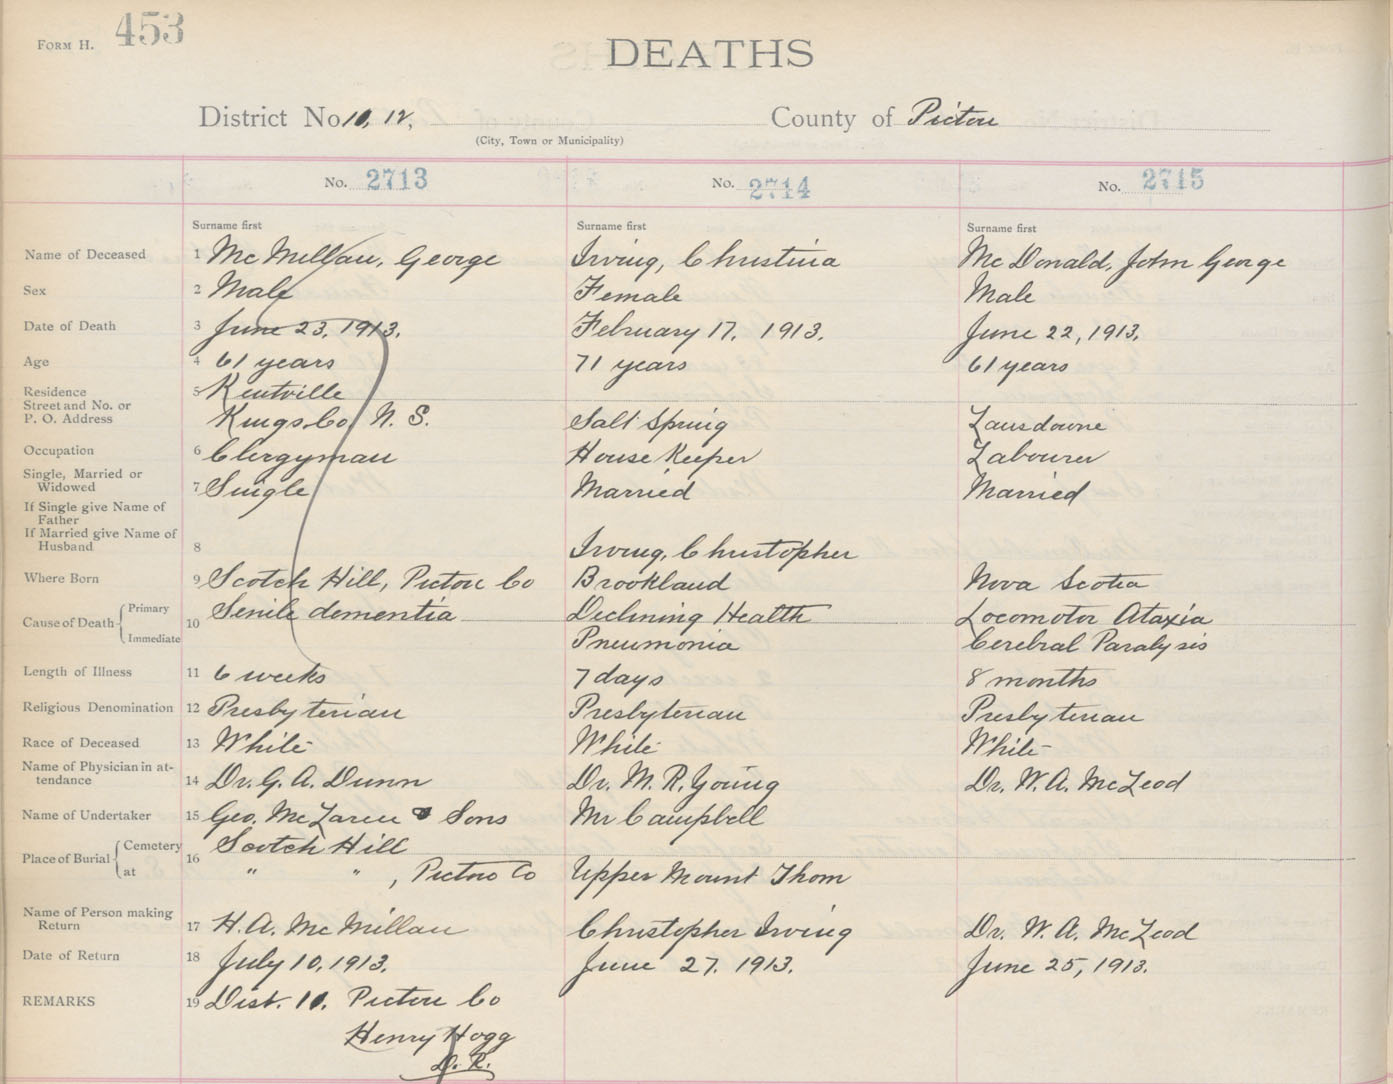 FORM H. 453
DEATHS
District No 10, 12, County of Pictou
(City, Town or Municipality)
No. 2713 No. 2714 No. 2715
Surname first Surname first Surname first
Name of Deceased 1 McMillan, George Irving, Christina McDonald, John George
Sex 2 Male Female Male
Date of Death 3 June 23, 1913. February 17, 1913. June 22, 1913.
Age 4 61 years 71 years 61 years
Residence 5 Kentville
Street and No. or
P. O. Address Kings Co, N. S. Salt Spring Lansdowne
Occupation 6 Clergyman House Keeper Labourer
Single, Married or
Widowed 7 Single Married Married
If Single give Name of
Father
If Married give Name of
Husband 8 Irving, Christopher
Where Born 9 Scotch Hill, Pictou Co Brookland Nova Scotia
Cause of Death Primary 10 Senile dementia Declining Health Locomotor Ataxia
Immediate Pneumonia Cerebral Paralysis
Length of Illness 11 6 weeks 7 days 8 months
Religious Denomination 12 Presbyterian Presbyterian Presbyterian
Race of Deceased 13 White White White
Name of Physician in at-
tendance 14 Dr. G. A. Dunn Dr. M. R. Young Dr. W. A. McLeod
Name of Undertaker 15 Geo. McLaren & Sons Mr Campbell
Place of Burial Cemetery 16 Scotch Hill
at " " , Pictou Co Upper Mount Thom
Name of Person making
Return 17 H. A. McMillan Christopher Irving Dr. W. A. McLeod
Date of Return 18 July 10, 1913. June 27. 1913. June 25, 1913.
REMARKS 19 Dist. 10. Pictou Co
Henry Hogg
D. R.